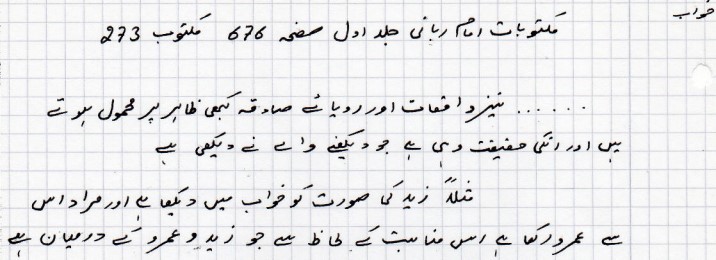 خواب
مکتوبات امام ربانی جلد اول صفحہ 676 مکتوب 273
...... نیز واقعات اور رویائے صادقہ کبھی ظاہر پر محمول ہوتے
ہیں اور انکی حقیقت وہی ہے جو دیکھنے والے نے دیکھی ہے
مثلاً زید کی صورت کو خواب میں دیکھا ہے اور مراد اس
سے عمرو رکھا ہے اس مناسبت کے لحاظ سے جو زید و عمرو کے درمیان ہے